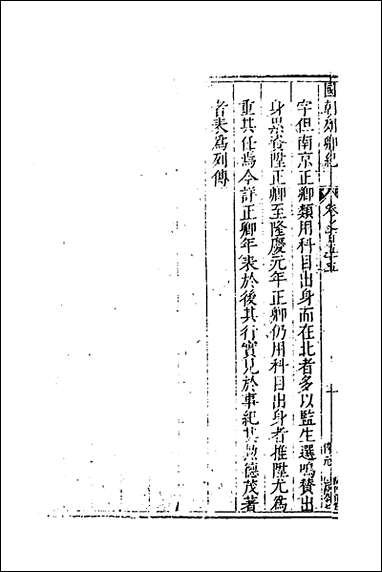 國朝列卿紀 卷之百五十五
字但南京正卿類用科目出身而在北者多以監生選鳴贊出
身累養陞正卿至隆慶元年正卿仍用科目出身者推陞尤為
重其任焉今詳正卿年表於後其行實見於事紀其勲德茂著
者表為列傳